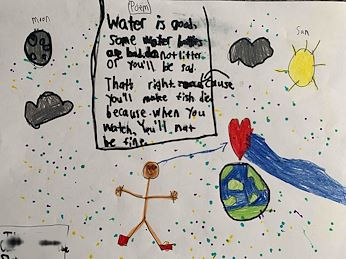 Poem
moon
Sun
Water is good.
Some water
are bad. do not litter
Or you'll be sad.
That's right cause
You'll make fish die
because when you
watch, You'll not
be fine.